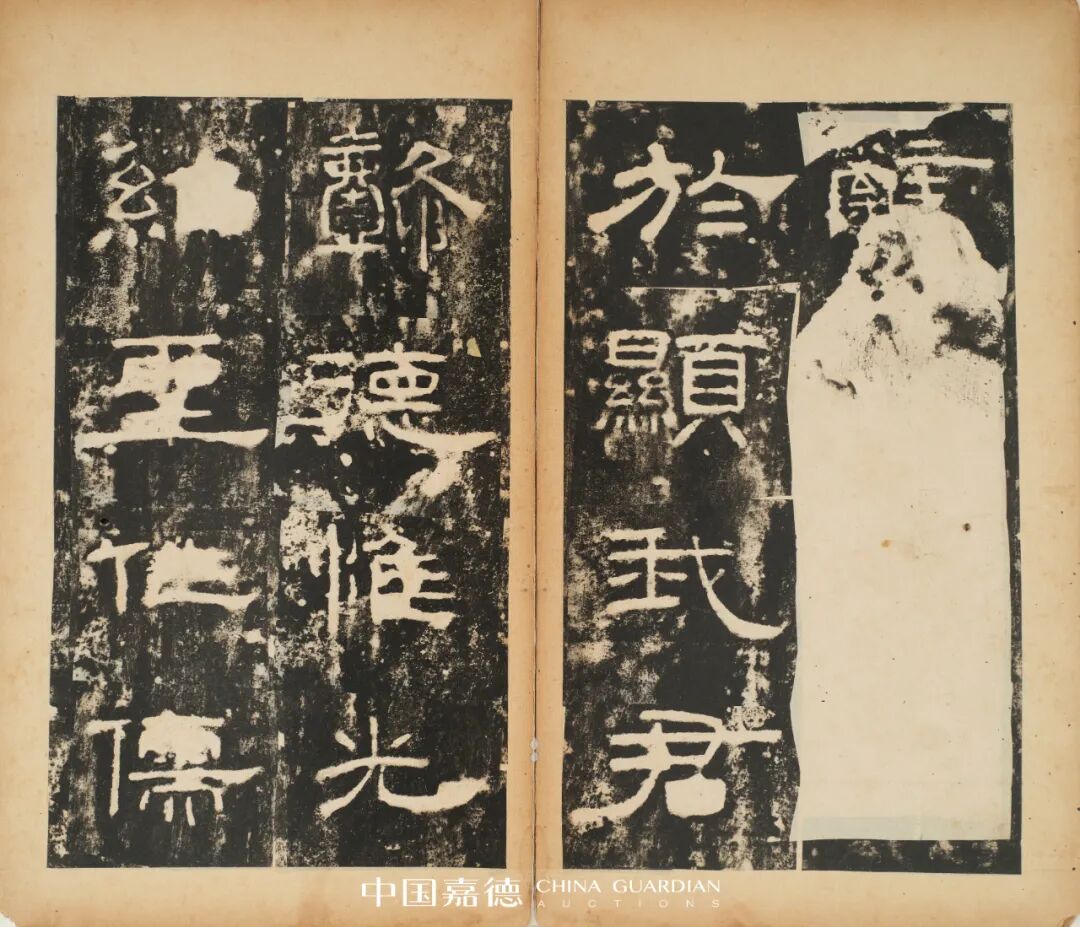 辭
於顯我君
懿德惟光
紹聖作儒
中国嘉德 CHINA GUARDIAN AUCTIONS